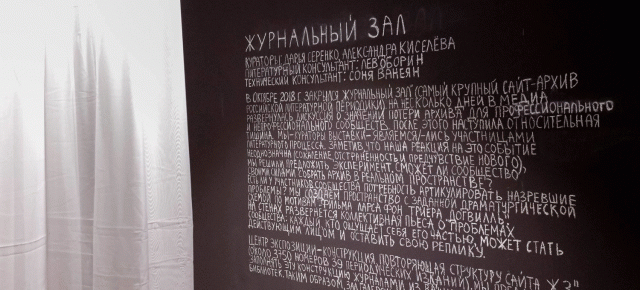 ЖУРНАЛЬНЫЙ ЗАЛ
КУРАТОРЫ: ДАРЬЯ СЕРЕНКО, АЛЕКСАНДРА КИСЕЛЁВА
ЛИТЕРАТУРНЫЙ КОНСУЛЬТАНТ: ЛЕВ ОБОРИН
ТЕХНИЧЕСКИЙ КОНСУЛЬТАНТ: СОНЯ ВАНЕЯН
В ОКТЯБРЕ 2018 Г. ЗАКРЫЛСЯ ЖУРНАЛЬНЫЙ ЗАЛ (САМЫЙ КРУПНЫЙ САЙТ-АРХИВ
РОССИЙСКОЙ ЛИТЕРАТУРНОЙ ПЕРИОДИКИ) НА НЕСКОЛЬКО ДНЕЙ В МЕДИА
РАЗВЕРНУЛИСЬ ДИСКУССИИ О ЗНАЧЕНИИ ПОТЕРИ АРХИВА ДЛЯ ПРОФЕССИОНАЛЬНОГО
И НЕПРОФЕССИОНАЛЬНОГО СООБЩЕСТВ, ПОСЛЕ ЭТОГО НАСТУПИЛА ОТНОСИТЕЛЬНАЯ
ТИШИНА. МЫ-КУРАТОРЫ ВЫСТАВКИ-ЯВЛЯЕМСЯ/ЛИСЬ УЧАСТНИЦАМИ
ЛИТЕРАТУРНОГО ПРОЦЕССА. ЗАМЕТИВ ЧТО НАША РЕАКЦИЯ НА ЭТО СОБЫТИЕ
НЕОДНОЗНАЧНА (СОЖАЛЕНИЕ, ОТСТРАНЁННОСТЬ И ПРЕДЧУВСТВИЕ НОВОГО),
МЫ РЕШИЛИ ПРЕДЛОЖИТЬ ЭКСПЕРИМЕНТ: СМОЖЕТ ЛИ СООБЩЕСТВО
СВОИМИ СИЛАМИ СОБРАТЬ АРХИВ В РЕАЛЬНОМ ПРОСТРАНСТВЕ?
ЕСТЬ ЛИ У УЧАСТНИКОВ СООБЩЕСТВА ПОТРЕБНОСТЬ АРТИКУЛИРОВАТЬ НАЗРЕВШИЕ
ПРОБЛЕМЫ? МЫ СОЗДАЁМ ПРОСТРАНСТВО С ЗАДАННОЙ ДРАМАТУРГИЧЕСКОЙ
ПО МОТИВАМ ФИЛЬМА ЛАРСА ФОН ТРИЕРА "ДОГВИЛЛЬ".
СТЕНАХ РАЗВЕРНЕТСЯ КОЛЛЕКТИВНАЯ ПЬЕСА О ПРОБЛЕМАХ
СООБЩЕСТВА. КАЖДЫЙ, КТО ОЩУЩАЕТ СЕБЯ ЕГО ЧАСТЬЮ, МОЖЕТ СТАТЬ
ДЕЙСТВУЮЩИМ ЛИЦОМ И ОСТАВИТЬ СВОЮ РЕПЛИКУ.
ЦЕНТР ЭКСПОЗИЦИИ-КОНСТРУКЦИЯ, ПОВТОРЯЮЩАЯ СТРУКТУРУ САЙТА "ЖЗ"
ОКОЛО 3750 НОМЕРОВ 39 ПЕРИОДИЧЕСКИХ ИЗДАНИЙ
ЭТУ КОНСТРУКЦИЮ ЖУРНАЛАМИ ИЗ
БИБЛИОТЕК. ТАКИМ ОБРАЗОМ,